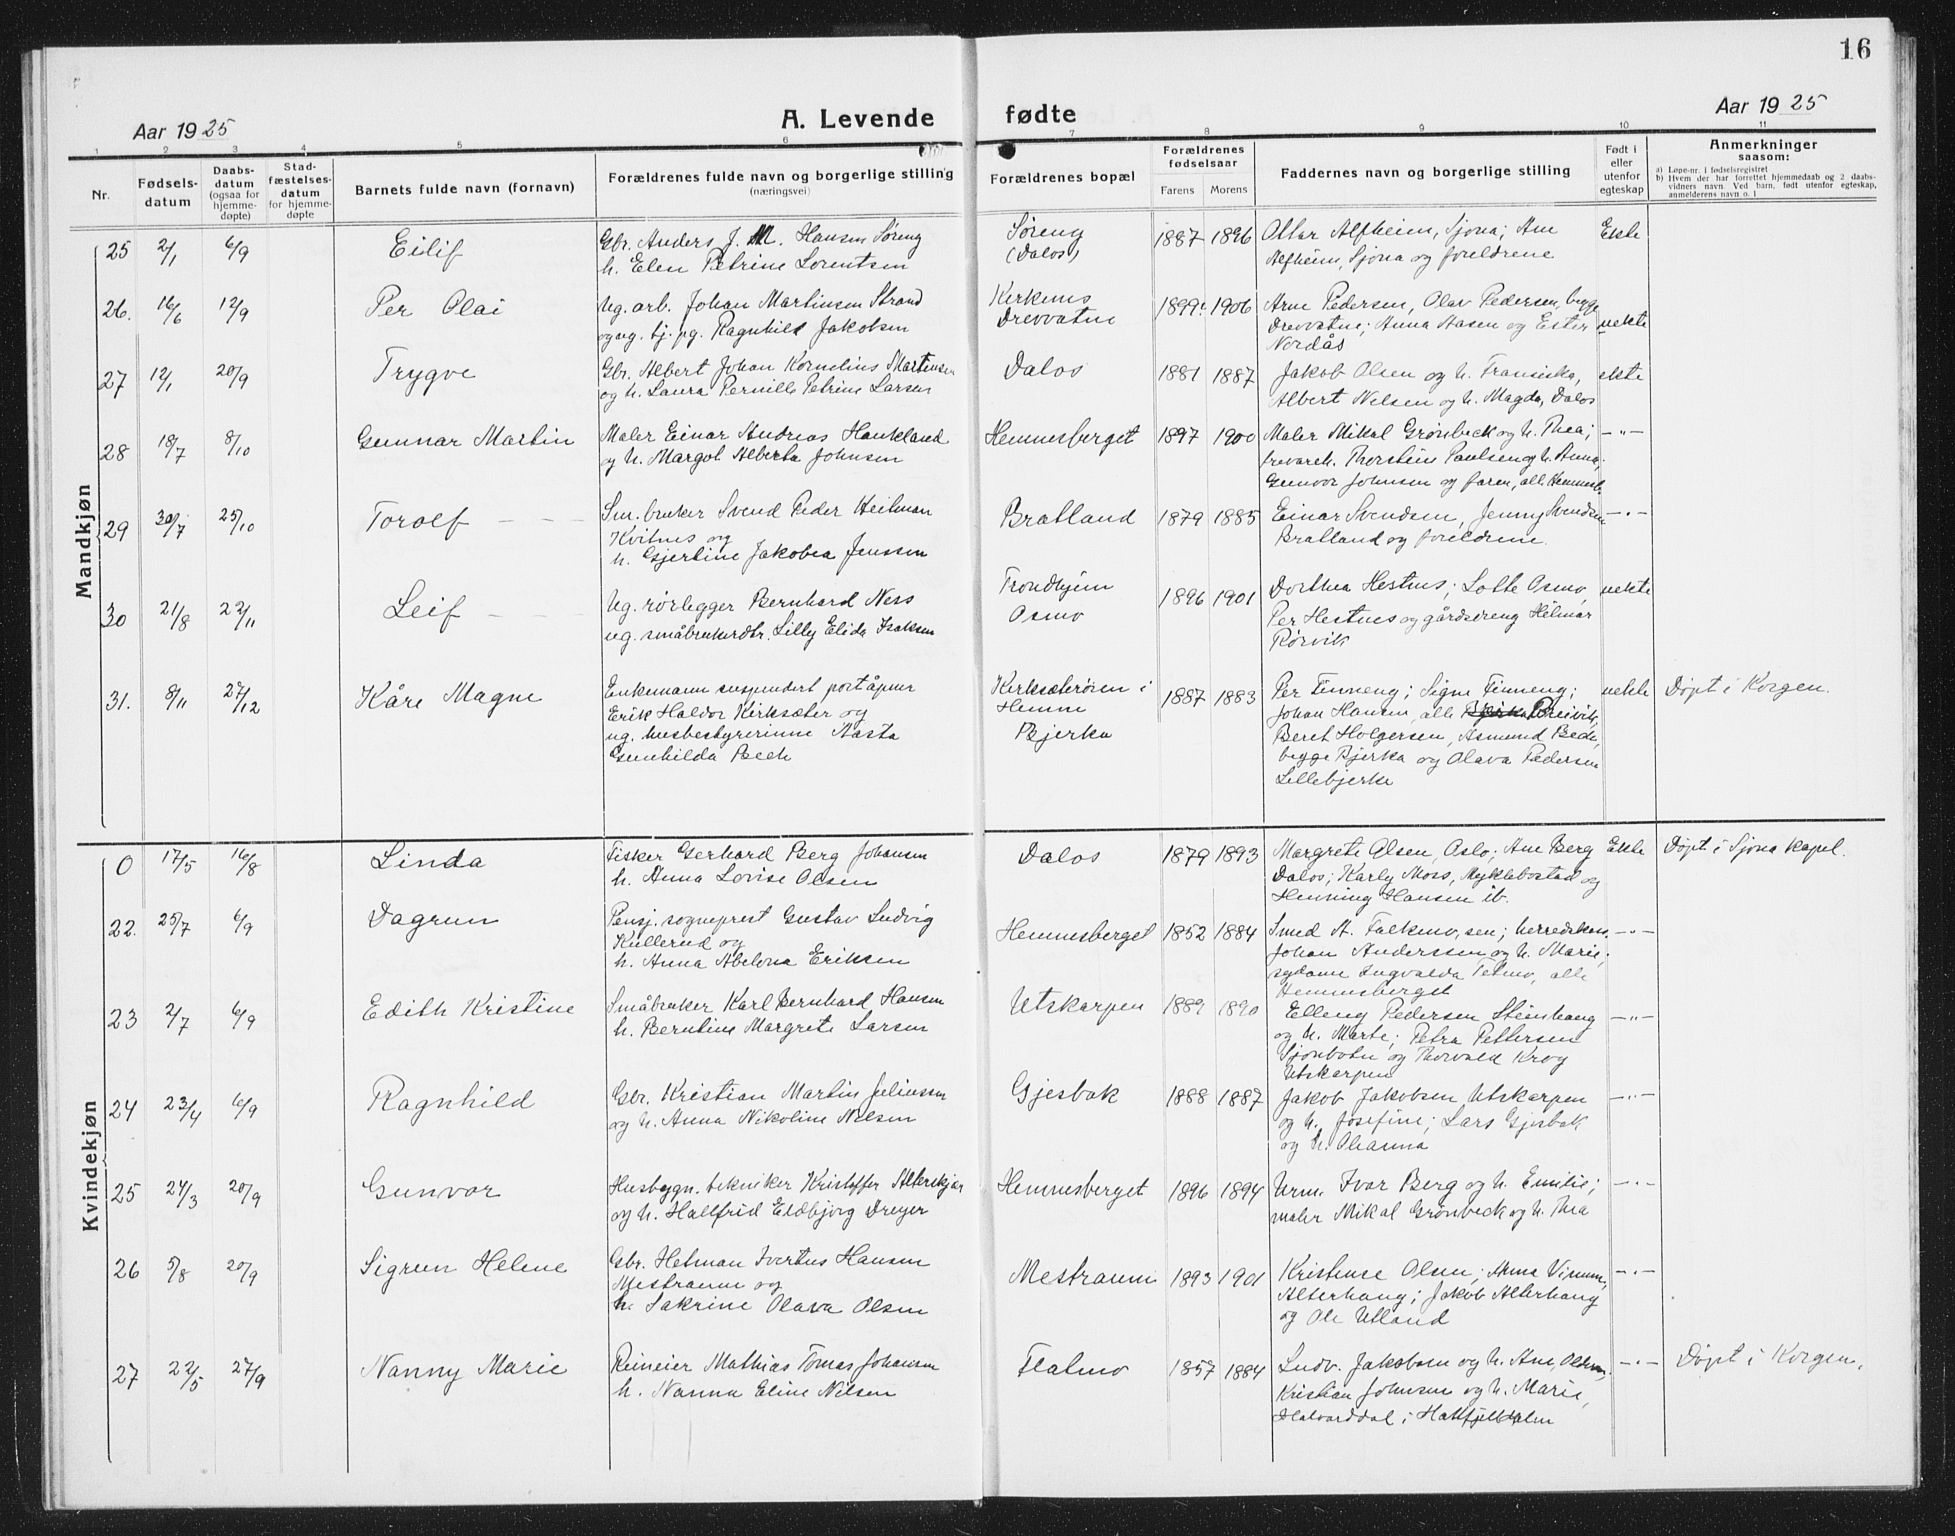 16
Aar 1925
A. Levende
fødte
Aar 1925
1 2 3 4 5 6
7 8 9 10 11
Nr.
Fødsels-
datum
Daabs-
datum
(ogsaa for
hjemme-
døpte)
Stad-
fæstelses-
datum
for hjemme-
døpte
Barnets fulde navn (fornavn)
Forældrenes fulde navn og borgerlige stilling
(næringsvei)
Forældrenes bopæl
Forældrenes
fødselsaar
Farens Morens
Faddernes navn og borgerlige stilling
Født i
eller
utenfor
egteskap
Anmerkninger
saasom:
a) Løpe-nr. i fødselsregistret
b) Hvem der har forrettet hjemmedaab og 2 daabs-
vidners navn. Ved barn, født utenfor egteskap,
anmelderens navn o. l
Mandkjøn
25 2/1 6/9 Eilif
Gbr. Anders J. M. Hansen Søreng
h. Elen Petrine Lorentsen
Søreng
(Dalos)
1887 1896
Ottar Alfheim, Sjona; Ane
Alfheim, Sjona og foreldrene
Ekte
26. 16/6 12/9 Per Olai
Ug. arb. Johan Martinsen Strand
og ug. tj. pg. Ragnhild Jakobsen
Kirknes
Drevvatne
1899 1906
Arne Pedersen, Olav Pedersen, begge
Drevvatne; Anna Aasen og Ester
Nordås
uekte
27 12/1 20/9 Trygve
Gbr. Albert Johan Kornelius Martinsen
og h. Laura Pernille Petrine Larsen
Dalos
1881 1887
Jakob Olsen og h. Fransiska,
Albert Nilsen og h. Magda, Dalos
ekte
28 18/7 8/10 Gunnar Martin
Maler Einar Andreas Haukland
og h. Margot Alberta Johnsen
Hemnesberget
1897 1900
Maler Mikal Grønbeck og h. Thea;
Thorstein Paulsen og h. Anna;
Gunvor Johnsen og faren, alle Hemnesb.
—"—
29 30/7 25/10 Toralf
Sm. bruker Svend Peder Heitman
Kvitnes og
h. Gjertine Jakobea Jenssen
Bratland
1879 1885
Einar Svendsen, Jenny Svendsen
Bratland og foreldrene.
—"—
30 21/8 22/11 Leif
Ug. rørlegger Bernhard Ness
ug. småbrukerdtr. Lilly Elida Isaksen
Trondhjem
Osmo
1896 1901
Dorthea Hestnes; Lotte Osmo,
Per Hestnes og gårdsdreng Hilmar
Rørvik
uekte
31. 8/11 27/12 Kåre Magne
Enkemann suspendert poståpner
Erik Haldor Kirksæter og
ug. husbestyrerinne Aasta
Gunhilda Bech
Kirksæterøren i
Hemne
Bjerka
1887 1883
Per Finneng; Signe Finneng;
Johan Hansen, alle Breivik,
Beret Holgersen, Asmund Bech,
begge Bjerka og Olava Pedersen
Lillebjerka
uekte
Døpt i Korgen.
Kvindekjøn
0 17/5 16/8 Linda
Fisker Gerhard Berg Johansen
h. Anna Lovise Olsen
Dalos
1879 1893
Margrete Olsen, Oslo; Ane Berg
Dalos; Karly Moss, Myklebostad og
Henning Hansen ib.
Ekte
Døpt i Sjona kapel.
22. 25/7 6/9 Dagrun
Pensj. sogneprest Gustav Ludvig
Kullerud og
h. Anna Abelona Eriksen
Hemnesberget
1852 1884
Smed A. Falkmo,sen; herredskas.
Johan Anderssen og h. Marie;
sydame Ingvalda Tetmo, alle
Hemnesberget
—"—
23 2/7 6/9 Edith Kristine
Småbruker Karl Bernhard Hansen
h. Berntine Margrete Larsen
Utskarpen
1889 1890
Elleng Pedersen Steinhaug
og h. Marte; Petra Pettersen
Sjonbotn og Thorvald Krog
Utskarpen
—"—
24 23/4 6/9 Ragnhild
Gbr. Kristian Martin Juliussen
og h. Anna Nikoline Nilsen
Gjesbak
1888 1887
Jakob Jakobsen Utskarpen
og h. Josefine; Lars Gjesbak
og h. Oleanna
—"—
25 24/3 20/9 Gunvor
Husbygn. tekniker Kristoffer Alterskjær
og h. Hallfrid Eldbjørg Dreyer
Hemnesberget
1896 1894
Urm. Ivar Berg og h. Emilie;
maler Mikal Grønbeck og h. Thea
—"—
26 5/8 20/9 Sigrun Helene
Gbr. Helman Ivertus Hansen
Mestraunen og
h. Sakrine Olava Olsen
Mestraunen
1893 1901
Kristense Olsen; Anna Vinnem,
Alterhaug; Jakob Alterhaug
og Ole Utland
—"—
27 22/5 27/9 Nanny Marie
Reineier Mathias Tomas Johansen
h. Nanna Eline Nilsen
Flatmo
1857 1884
Ludv. Jakobsen og h. Ane, Olsen,
Kristian Johnsen og h. Marie,
Halvarddal i Hatfjelldalen
—"—
Døpt i Korgen.